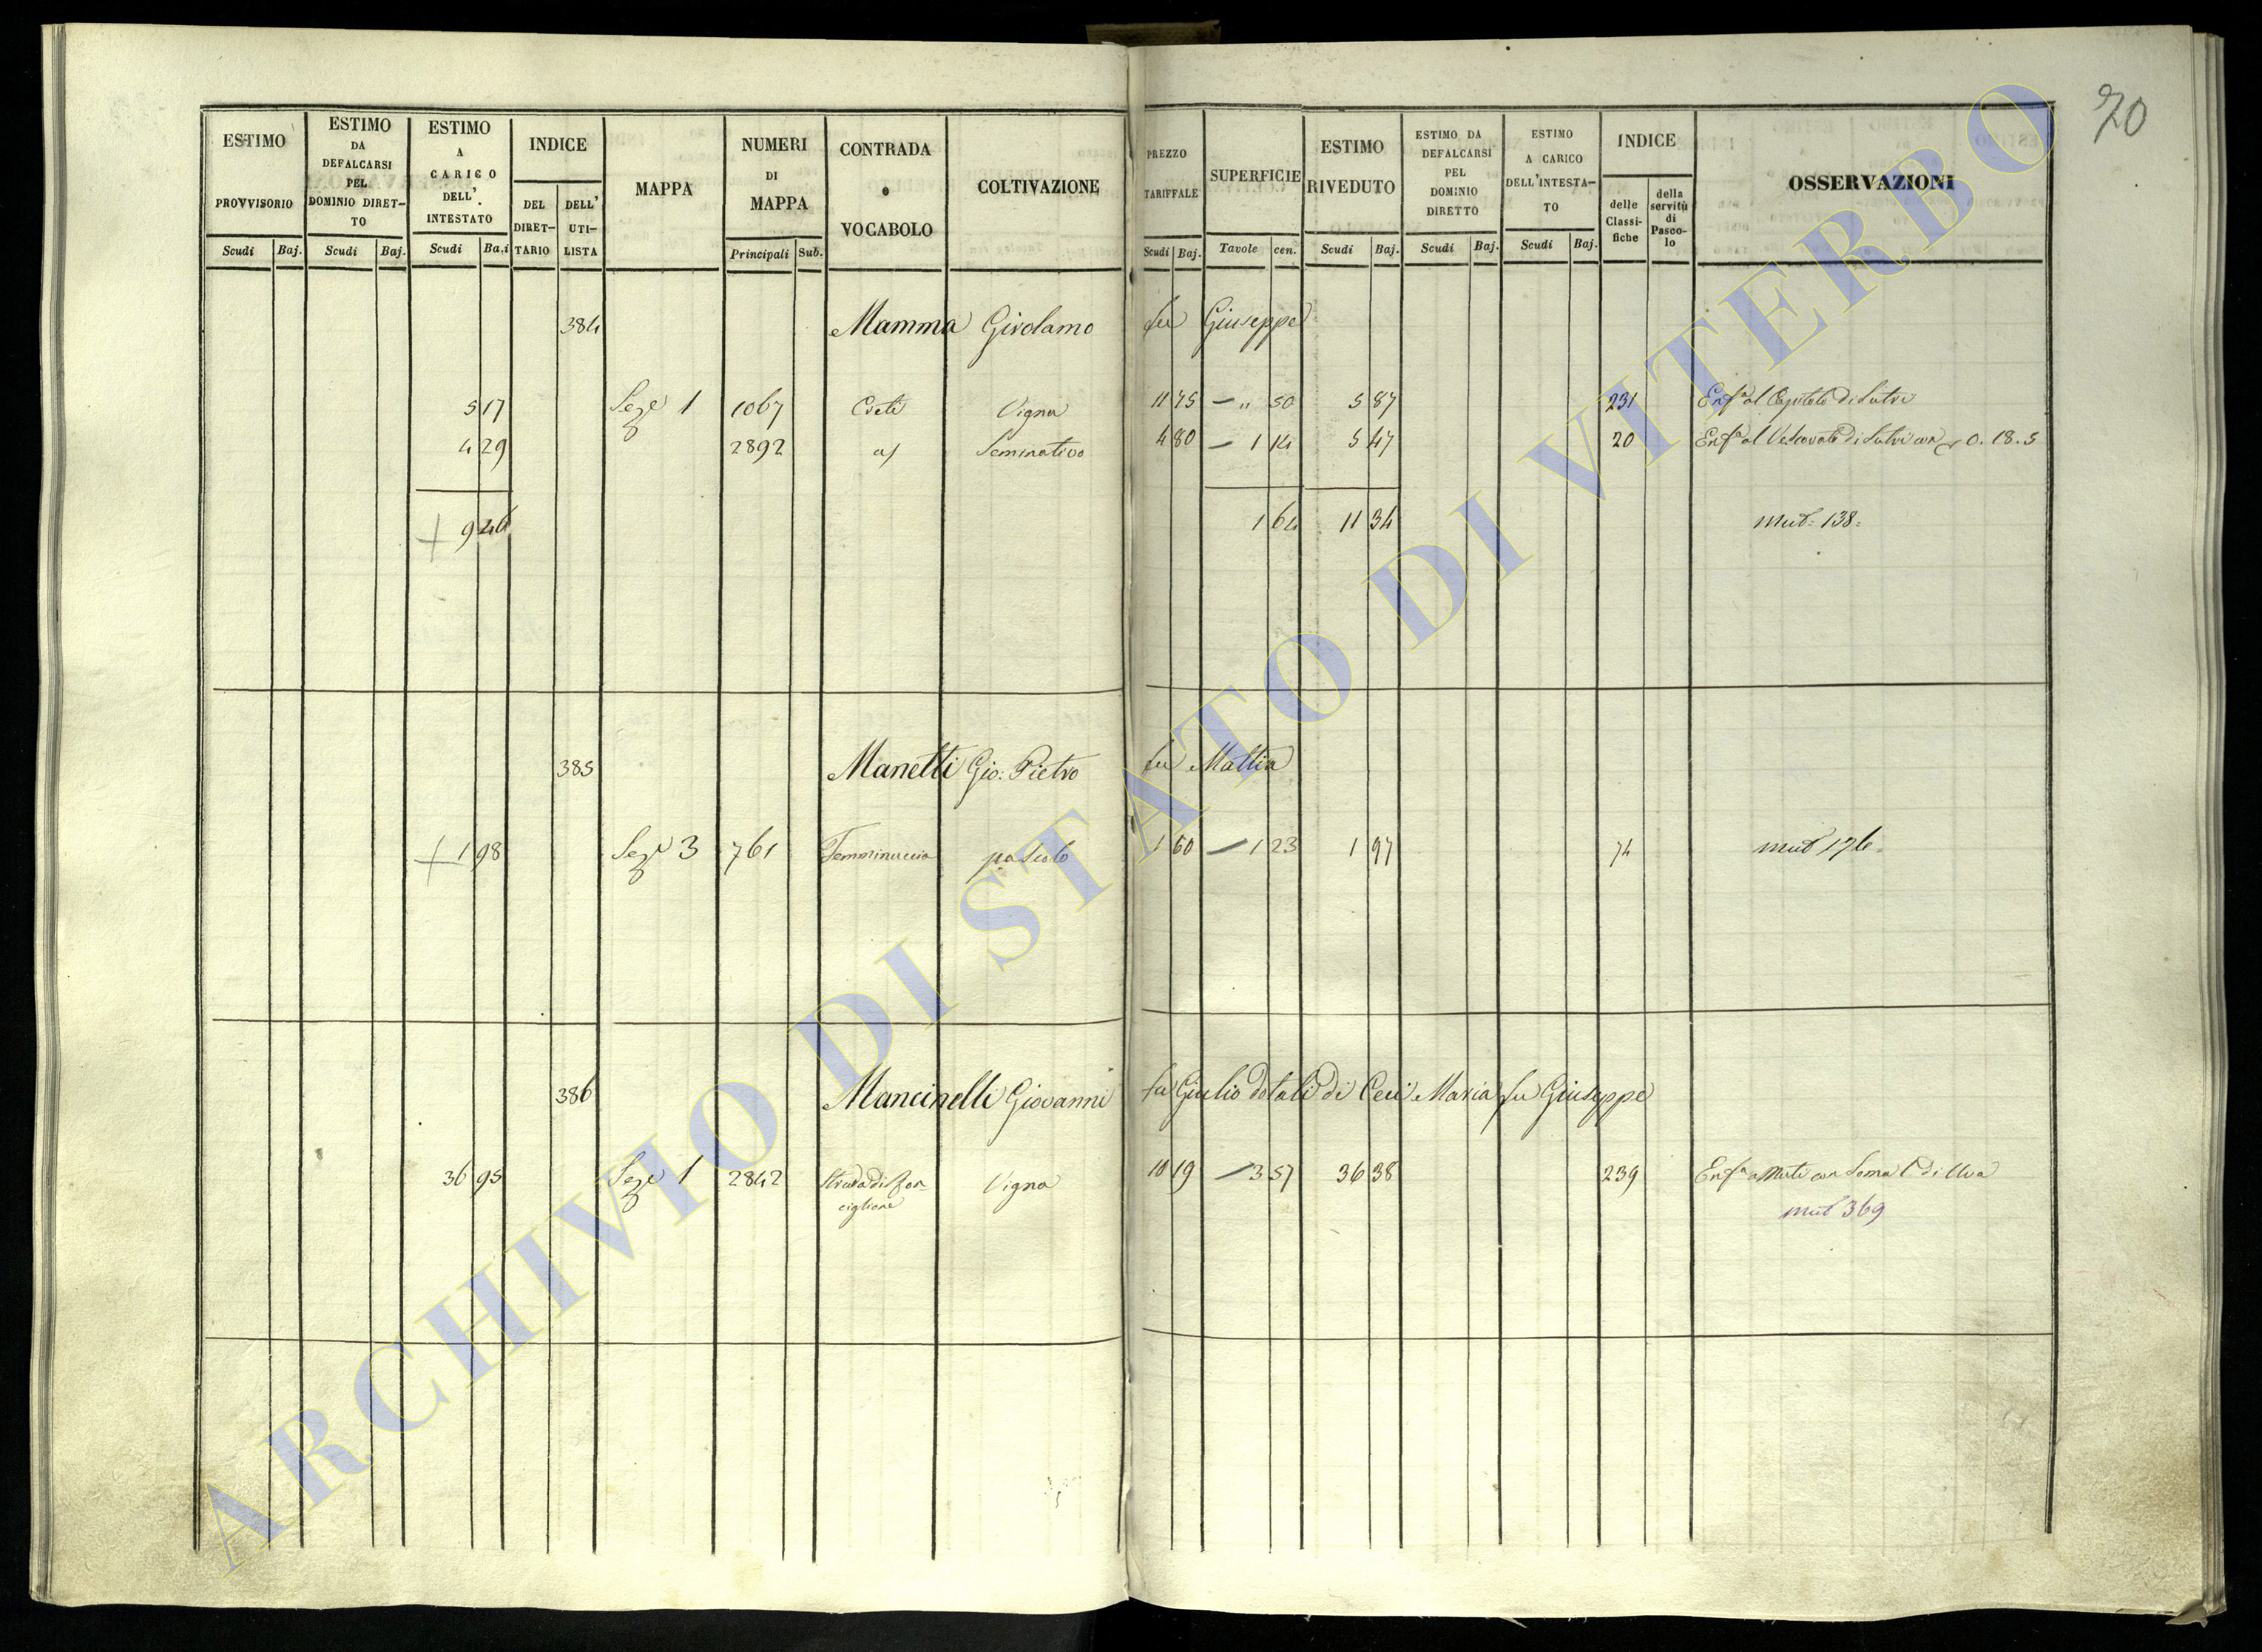 70
ESTIMO PROVVISORIO
ESTIMO DA DEFALCARSI PEL DOMINIO DIRET-TO
ESTIMO A CARICO DELL'INTESTATO
INDICE
DEL DIRET-TARIO
DELL'UTI-LISTA
MAPPA
NUMERI DI MAPPA
CONTRADA o VOCABOLO
COLTIVAZIONE
PREZZO TARIFFALE
SUPERFICIE
ESTIMO RIVEDUTO
ESTIMO DA DEFALCARSI PEL DOMINIO DIRETTO
ESTIMO A CARICO DELL'INTESTA-TO
INDICE
delle Classi-fiche
della servitù di Pasco-lo
OSSERVAZIONI
Scudi Baj. Scudi Baj. Scudi Ba.i Principali Sub. Scudi Baj. Tavole cen. Scudi Baj. Scudi Baj. Scudi Baj.
384 Mamma Girolamo fu Giuseppe
5 17 Seze 1 1067 Creti Vigna 11 75 — " 50 5 87 231 Enfa al Capitolo di Sutri
4 29 2892 a/ Seminativo 4 80 — 1 14 5 47 20 Enfa al Vescovato di Sutri con 0.18.5
9 46 1 64 11 34 Mut: 138:
385 Manetti Gio: Pietro fu Mattia
1 98 Sezе 3 761 Femminuccia pascolo 1 60 — 1 23 1 97 74 mut 176
386 Mancinelli Giovanni fu Giulio dotali di Ceci Maria fu Giuseppe
36 95 Seze 1 2842 Strada di Ron-
ciglione Vigna 10 19 — 3 57 36 38 239 Enfa a Muti con Soma 1 di Uva
mut 369
ARCHIVIO DI STATO DI VITERBO